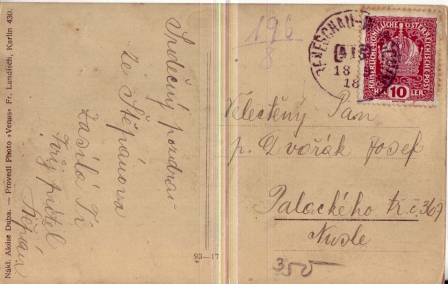 Nákl. Aloise Duba. — Provedl Photo »Venus« Fr. Lundisch, Karlín 430.
Srdečný pozdrav
ze Štěpánova
Zasílá Tí
Tvůj přítel
Štěpán
93—17
196
8
BENESCHAU
18
18
KAISERLICHE KÖNIGLICHE ÖSTERREICHISCHE POST
HELLER 10
Velectěný Pan
p. Dvořák Josef
Palackého tř. č. 369
Nusle
350